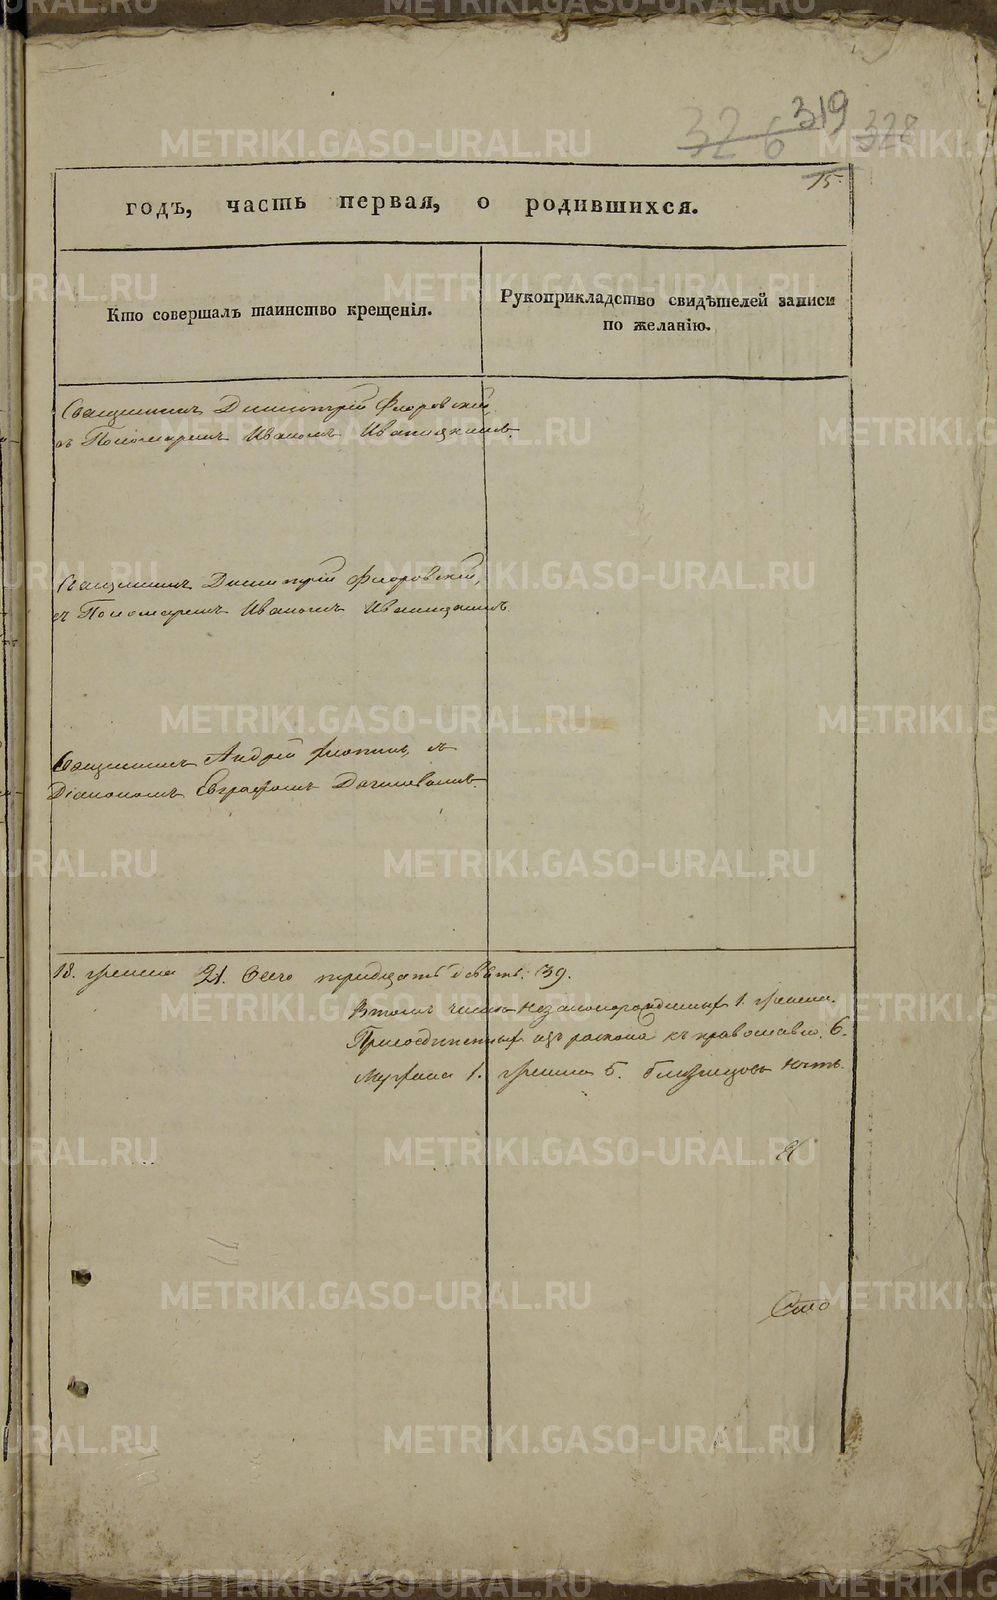 326 319 328
15.
годъ, часть первая, о родившихся.
Кто совершалъ таинство крещенія.
Рукоприкладство свидѣтелей записи
по желанію.
Священникъ Димитрій Флоровскій
съ Пономаремъ Иваномъ Иваницкимъ.
Священникъ Димитрій Флоровскій,
съ Пономаремъ Иваномъ Иваницкимъ
Священникъ Андрей съ
Діакономъ Евграфомъ
18. женска 21. Всего тридцать девять. 39.
Втомъ числѣ незаконорожденныхъ 1. женска.
Присоединенныхъ изъ раскола къ православію. 6.
Мужеска 1. женска 5. близнецовъ нѣтъ.
Сто
METRIKI.GASO-URAL.RU